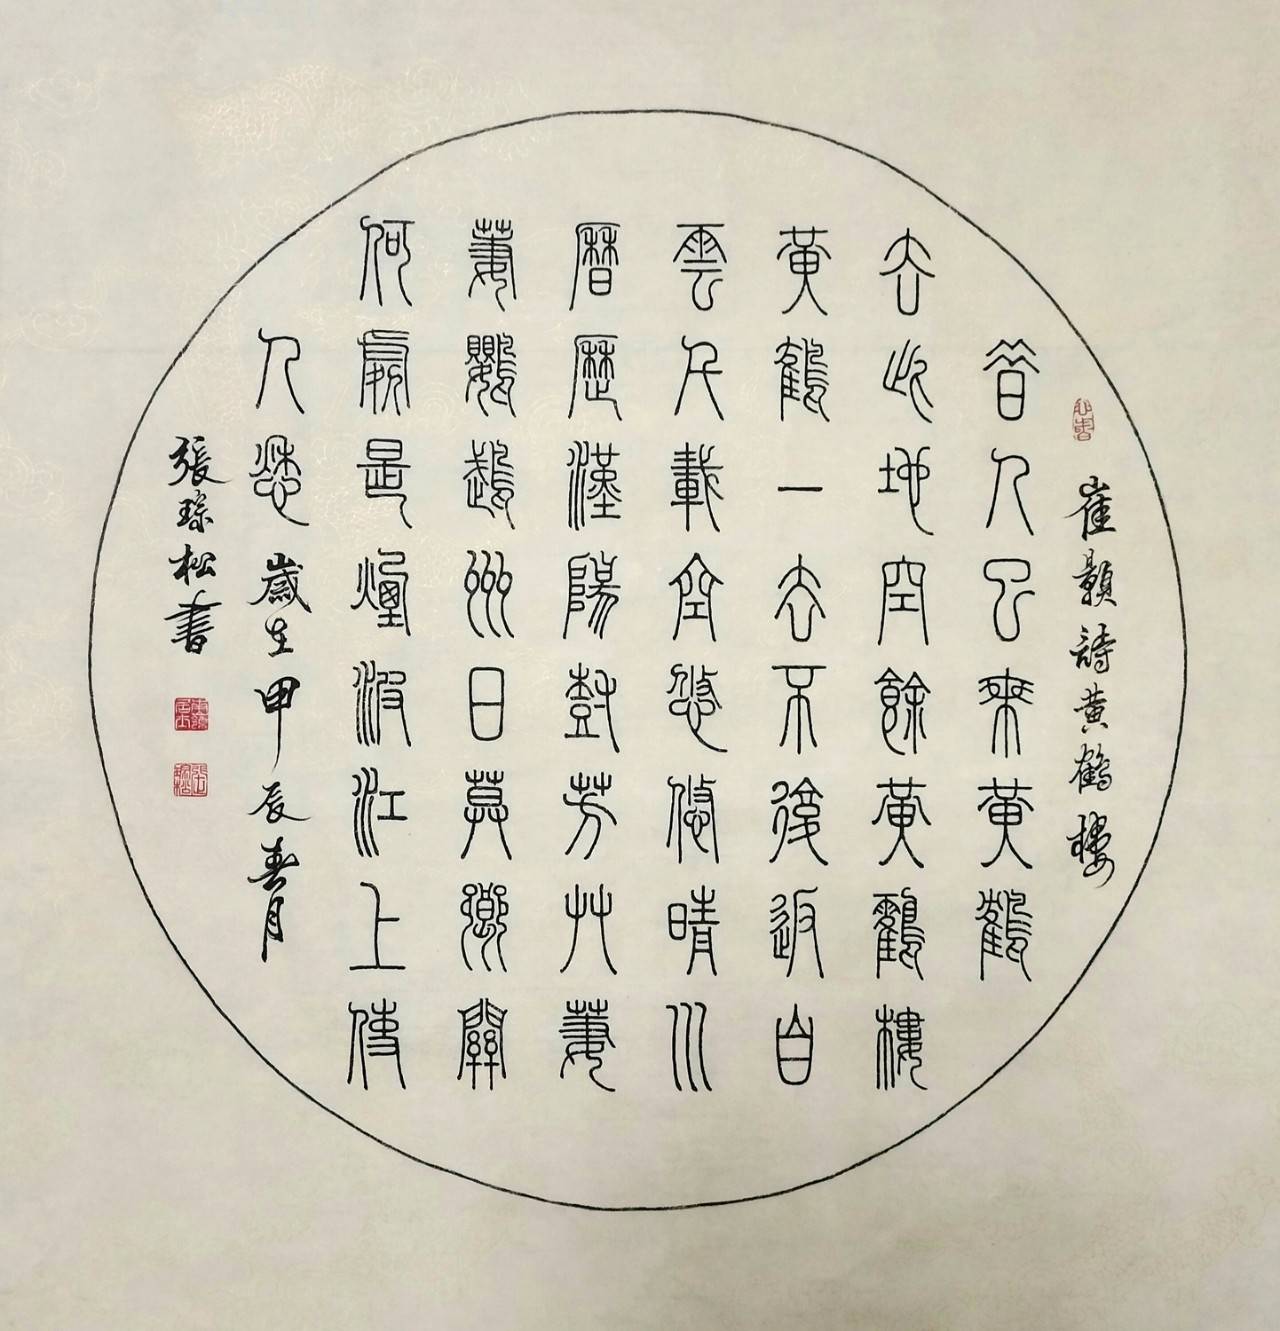 崔顥詩黃鶴樓
昔人已乘黃鶴
去此地空餘黃鶴樓
黃鶴一去不復返白
雲千載空悠悠晴川
曆歷漢陽樹芳艸萋
萋鸚鵡州日莫鄉關
何處是煙波江上使
人愁 歲在甲辰春月
張松書